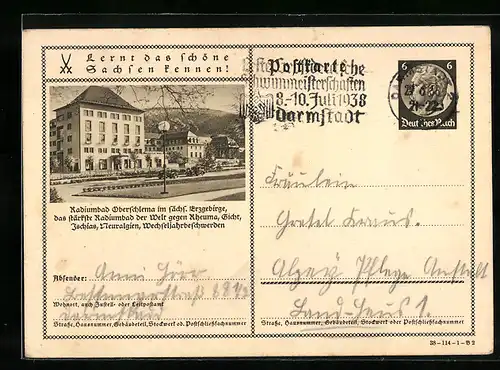 Lernt das schöne
Sachsen kennen!
Postkarte
8.-10. Juli 1938
Darmstadt
6 6
Deutsches Reich
Radiumbad Oberschlema im sächs. Erzgebirge,
das stärkste Radiumbad der Welt gegen Rheuma, Gicht,
Ischias, Neuralgien, Wechseljahrbeschwerden
Fräulein
Gretel Kraus.
Alzey Pflege Anstalt
Land-Haus 1.
Absender: Anni
Wohnort, auch Zustell- oder Leitpostamt
Darmstadt
Straße, Hausnummer, Gebäudeteil, Stockwerk od. Postschließfachnummer
Straße, Hausnummer, Gebäudeteil, Stockwerk oder Postschließfachnummer
38-114-1-B2